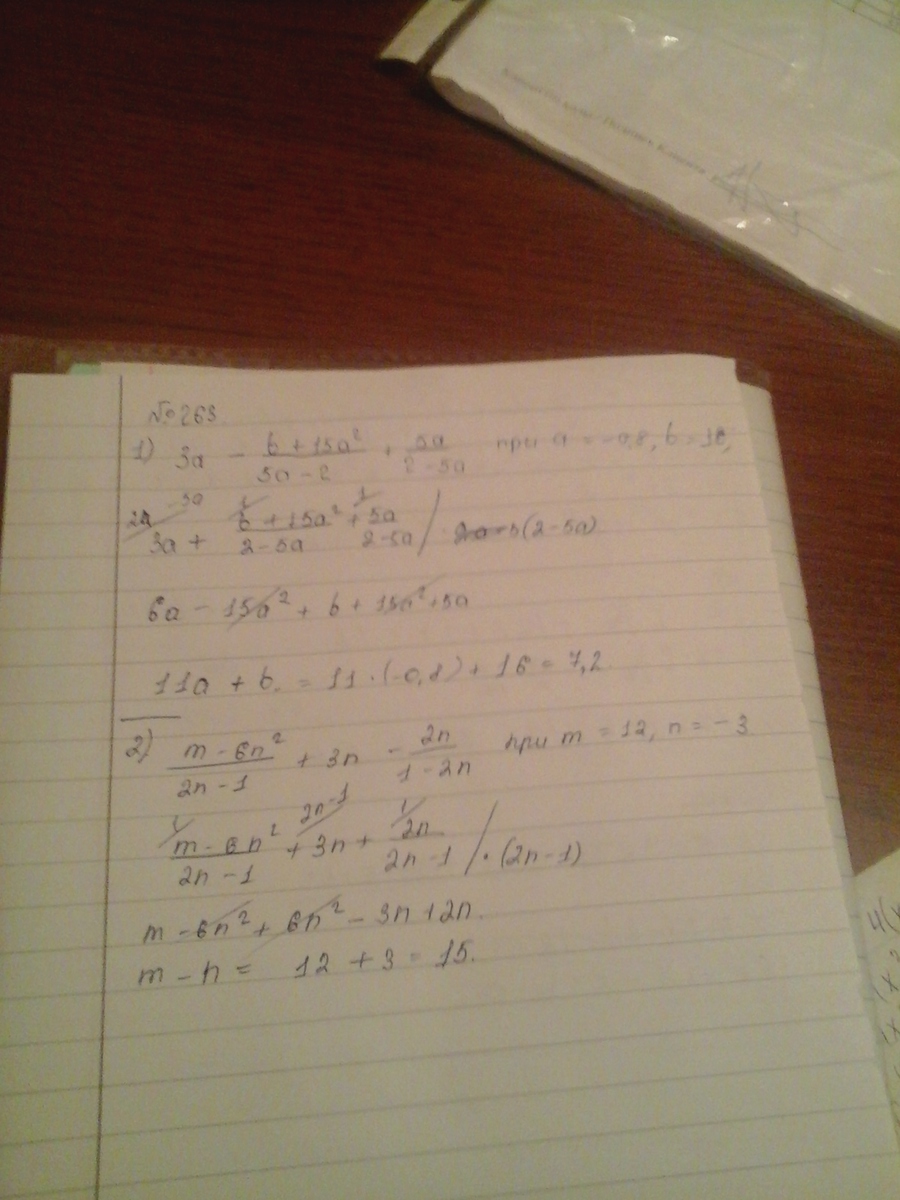 №263.
1) 3a - (b + 15a²)/(5a - 2) + 5a/(2 - 5a) при a = -0,8, b = 16,
3a + (b + 15a²)/(2 - 5a) + 5a/(2 - 5a) / (2 - 5a)
6a - 15a² + b + 15a² + 5a
11a + b. = 11 · (-0,8) + 16 = 7,2.
2) (m - 6n²)/(2n - 1) + 3n - 2n/(1 - 2n) при m = 12, n = -3
(m - 6n²)/(2n - 1) + 3n + 2n/(2n - 1) / · (2n - 1)
m - 6n² + 6n² - 3n + 2n.
m - n = 12 + 3 = 15.